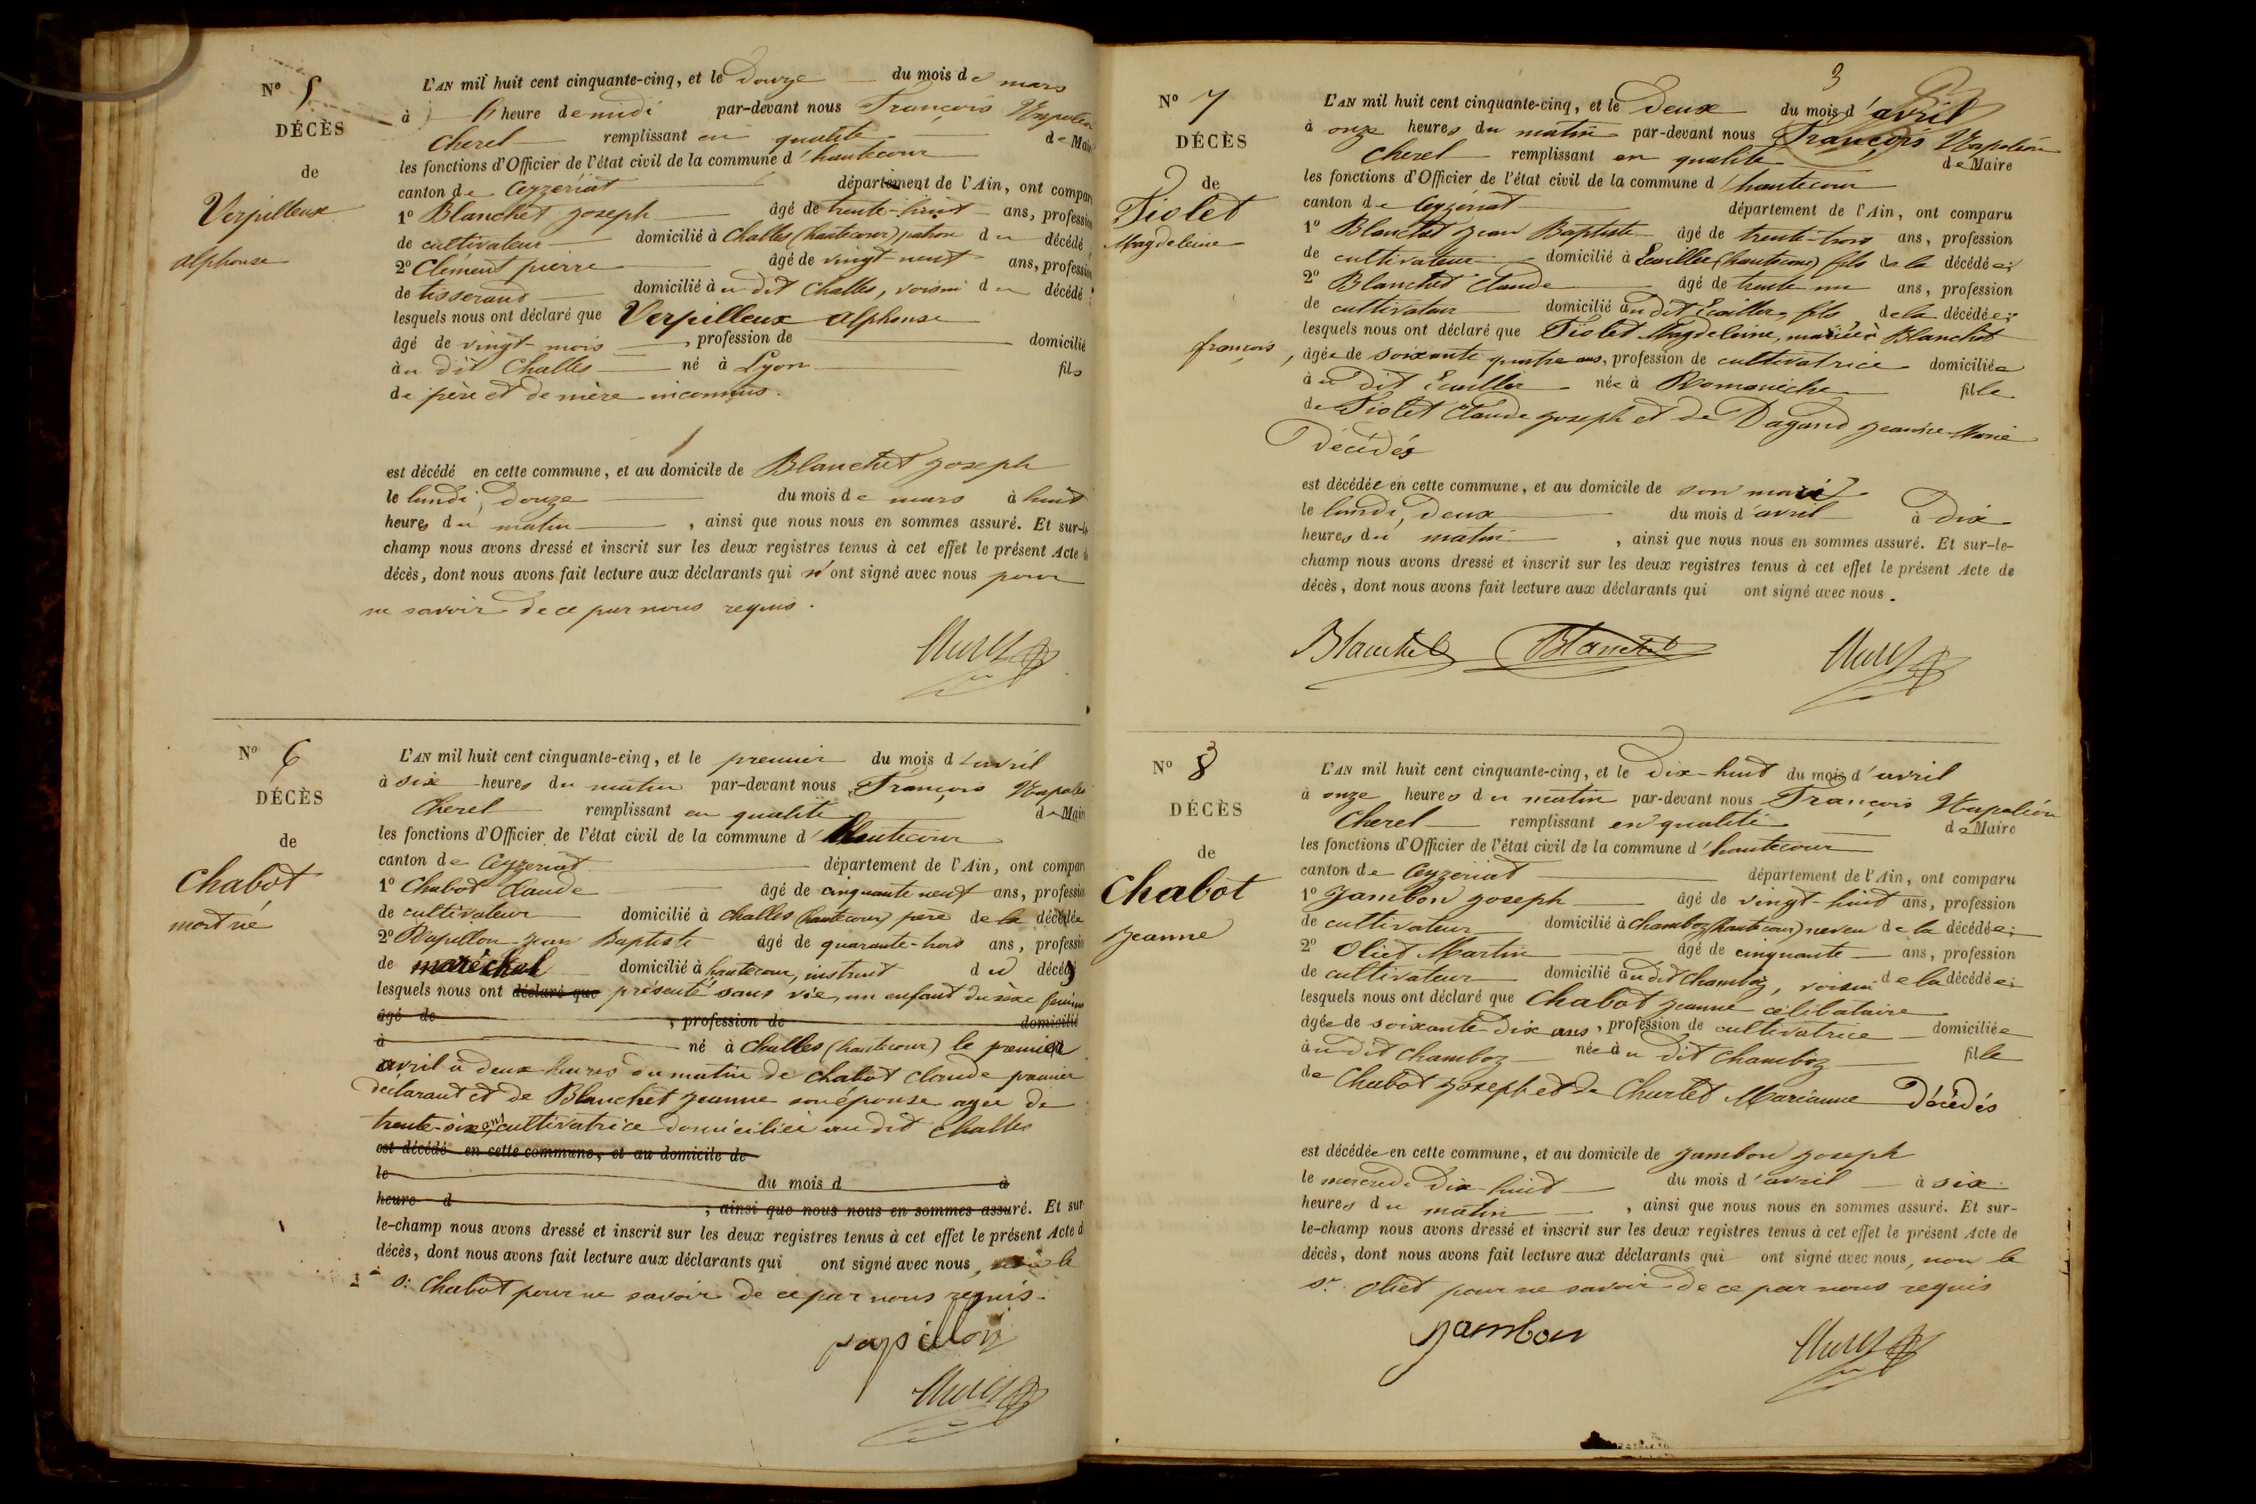 N° 5
DÉCÈS
de
Verpilleux
alphonse
L'AN mil huit cent cinquante-cinq, et le Douze du mois de mars
à heure de midi par-devant nous François Napoléon
Cherel remplissant en qualité de Maire
les fonctions d'Officier de l'état civil de la commune d'hautecour
canton de Ceyzeriat département de l'Ain, ont comparu
1° Blanchet joseph âgé de trente-huit ans, profession
de cultivateur domicilié à Challes (hautecour) patron du décédé
2° Clément pierre âgé de vingt-neuf ans, profession
de tisserand domicilié au dit Challes, voisin du décédé
lesquels nous ont déclaré que Verpilleux alphonse
âgé de vingt mois, profession de domicilié
au dit Challes né à Lyon fils
de père et de mère inconnus.
est décédé en cette commune, et au domicile de Blanchet joseph
le lundi, douze du mois de mars à huit
heures du matin, ainsi que nous nous en sommes assuré. Et sur-le-
champ nous avons dressé et inscrit sur les deux registres tenus à cet effet le présent Acte de
décès, dont nous avons fait lecture aux déclarants qui n'ont signé avec nous pour
ne savoir de ce par nous requis.
N° 6
DÉCÈS
de
Chabot
mort né
L'AN mil huit cent cinquante-cinq, et le premier du mois d'avril
à six heures du matin par-devant nous François Napoléon
Cherel remplissant en qualité de Maire
les fonctions d'Officier de l'état civil de la commune d'hautecour
canton de Ceyzeriat département de l'Ain, ont comparu
1° Chabot Claude âgé de cinquante neuf ans, profession
de cultivateur domicilié à Challes (hautecour) père de la décédée
2° Papillon jean Baptiste âgé de quarante-trois ans, profession
de maréchal domicilié à hautecour, instruit du décès
lesquels nous ont déclaré que présenté sans vie, un enfant du sexe féminin
âgé de , profession de domicilié
à né à Challes (hautecour) le premier
avril à deux heures du matin de Chabot Claude premier
déclarant et de Blanchet jeanne son épouse agée de
trente-six ans, cultivatrice domiciliée au dit Challes
est décédé en cette commune, et au domicile de
le du mois d à
heure d , ainsi que nous nous en sommes assuré. Et sur-
le-champ nous avons dressé et inscrit sur les deux registres tenus à cet effet le présent Acte de
décès, dont nous avons fait lecture aux déclarants qui ont signé avec nous, le
Sr. Chabot pour ne savoir de ce par nous requis.
papillon
3
N° 7
DÉCÈS
de
Tiolet
Magdeleine
L'AN mil huit cent cinquante-cinq, et le Deux du mois d'avril
à onze heures du matin par-devant nous François Napoléon
Cherel remplissant en qualité de Maire
les fonctions d'Officier de l'état civil de la commune d'hautecour
canton de Ceyzeriat département de l'Ain, ont comparu
1° Blanchet jean Baptiste âgé de trente-trois ans, profession
de cultivateur domicilié à (hautecour) fils de la décédée;
2° Blanchet Claude âgé de trente un ans, profession
de cultivateur domicilié au dit fils de la décédée;
lesquels nous ont déclaré que Tiolet Magdeleine, mariée à Blanchet
françois, âgée de soixante quatre ans, profession de cultivatrice domiciliée
au dit née à Romanèche fille
de Tiolet Claude joseph et de Dagand jeanne Marie
Décédés
est décédée en cette commune, et au domicile de son mari
le lundi, deux du mois d'avril à dix
heures du matin, ainsi que nous nous en sommes assuré. Et sur-le-
champ nous avons dressé et inscrit sur les deux registres tenus à cet effet le présent Acte de
décès, dont nous avons fait lecture aux déclarants qui ont signé avec nous.
Blanchet Blanchet
N° 8
DÉCÈS
de
Chabot
jeanne
L'AN mil huit cent cinquante-cinq, et le Dix-huit du mois d'avril
à onze heures du matin par-devant nous François Napoléon
Cherel remplissant en qualité de Maire
les fonctions d'Officier de l'état civil de la commune d'hautecour
canton de Ceyzeriat département de l'Ain, ont comparu
1° Jambon joseph âgé de vingt-huit ans, profession
de cultivateur domicilié à Chamboz (hautecour) neveu de la décédée;
2° Oliet Martin âgé de cinquante ans, profession
de cultivateur domicilié au dit Chamboz, voisin de la décédée;
lesquels nous ont déclaré que Chabot jeanne célibataire
âgée de soixante-dix ans, profession de cultivatrice domiciliée
au dit Chamboz née au dit Chamboz fille
de Chabot joseph et de Churlet Marianne Décédés
est décédée en cette commune, et au domicile de Jambon joseph
le mercredi dix-huit du mois d'avril à six
heures du matin, ainsi que nous nous en sommes assuré. Et sur-
le-champ nous avons dressé et inscrit sur les deux registres tenus à cet effet le présent Acte de
décès, dont nous avons fait lecture aux déclarants qui ont signé avec nous, non le
Sr. Oliet pour ne savoir de ce par nous requis
Jambon